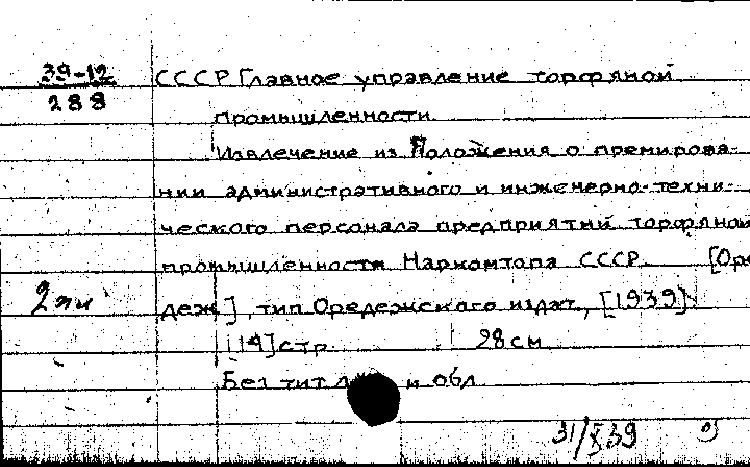 39-12
288
СССР Главное управление торфяной
промышленности.
Извлечение из Положения о премирова-
нии административного и инженерно-техни-
ческого персонала предприятий торфяной
промышленности Наркомтопа СССР. [Оре
деж], тип Оредежского издат, [1939]
[14] стр 28 см
Без тит и обл
31/X 39